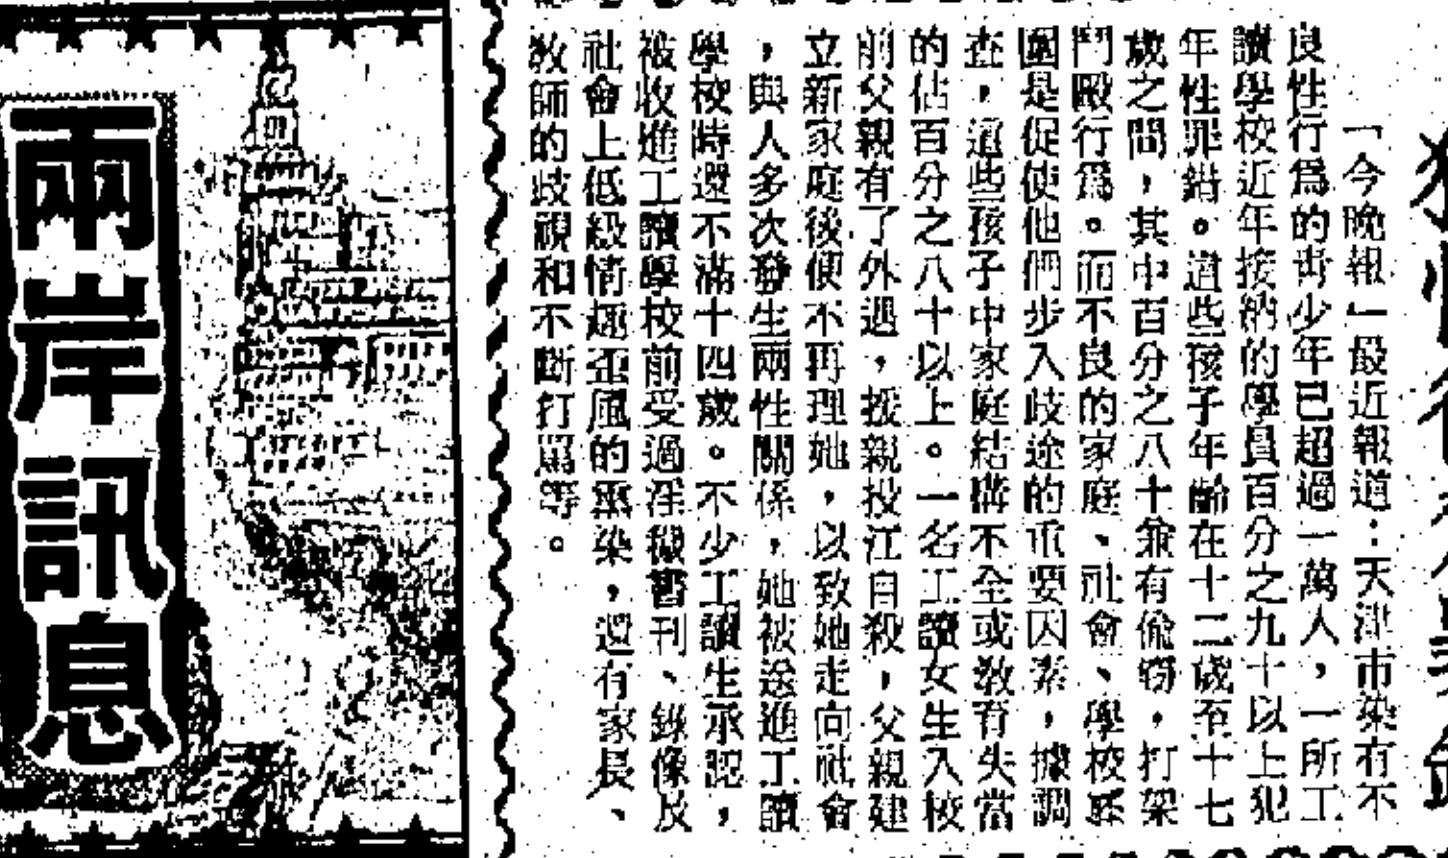 「今晚報」最近報道：天津市染有不
良性行爲的靑少年已超過一萬人，一所工
讀學校近年接納的學員百分之九十以上犯
年性罪錯。這些孩子年齡在十二歲至十七
歲之間，其中百分之八十兼有偷竊，打架
鬥毆行爲。而不良的家庭、社會、學校氛
圍是促使他們步入歧途的重要因素，據調
查，這些孩子中家庭結構不全或敎育失當
的佔百分之八十以上。一名工讀女生入校
前父親有了外遇，援親投江自殺，父親建
立新家庭後便不再理她，以致她走向社會
，與人多次發生兩性關係，她被送進工讀
學校時還不滿十四歲。不少工讀生承認，
被收進工讀學校前受過淫穢書刊、錄像及
社會上低級情趣歪風的熏染，還有家長、
敎師的歧視和不斷打駡等。
兩岸訊息